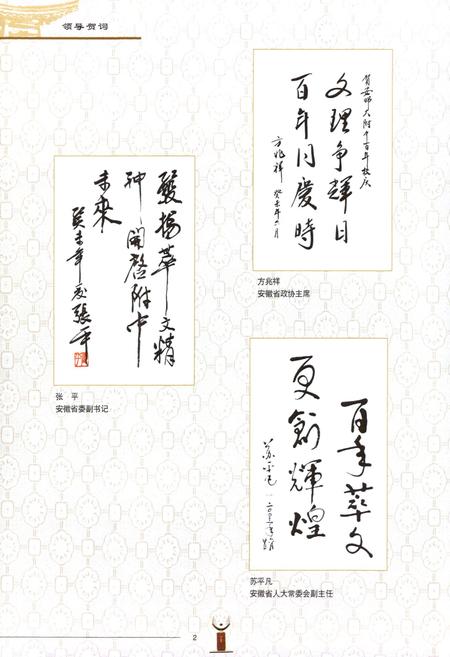 领导贺词
贺安师大附中百年校庆
文理争辉日
百年同慶時
方兆祥 癸未年六月
方兆祥
安徽省政协主席
發揚萃文精
神開啓附中
未來
癸未年夏張平
张 平
安徽省委副书记
百年萃文
更創輝煌
苏平凡 二〇〇三年六月
苏平凡
安徽省人大常委会副主任
2